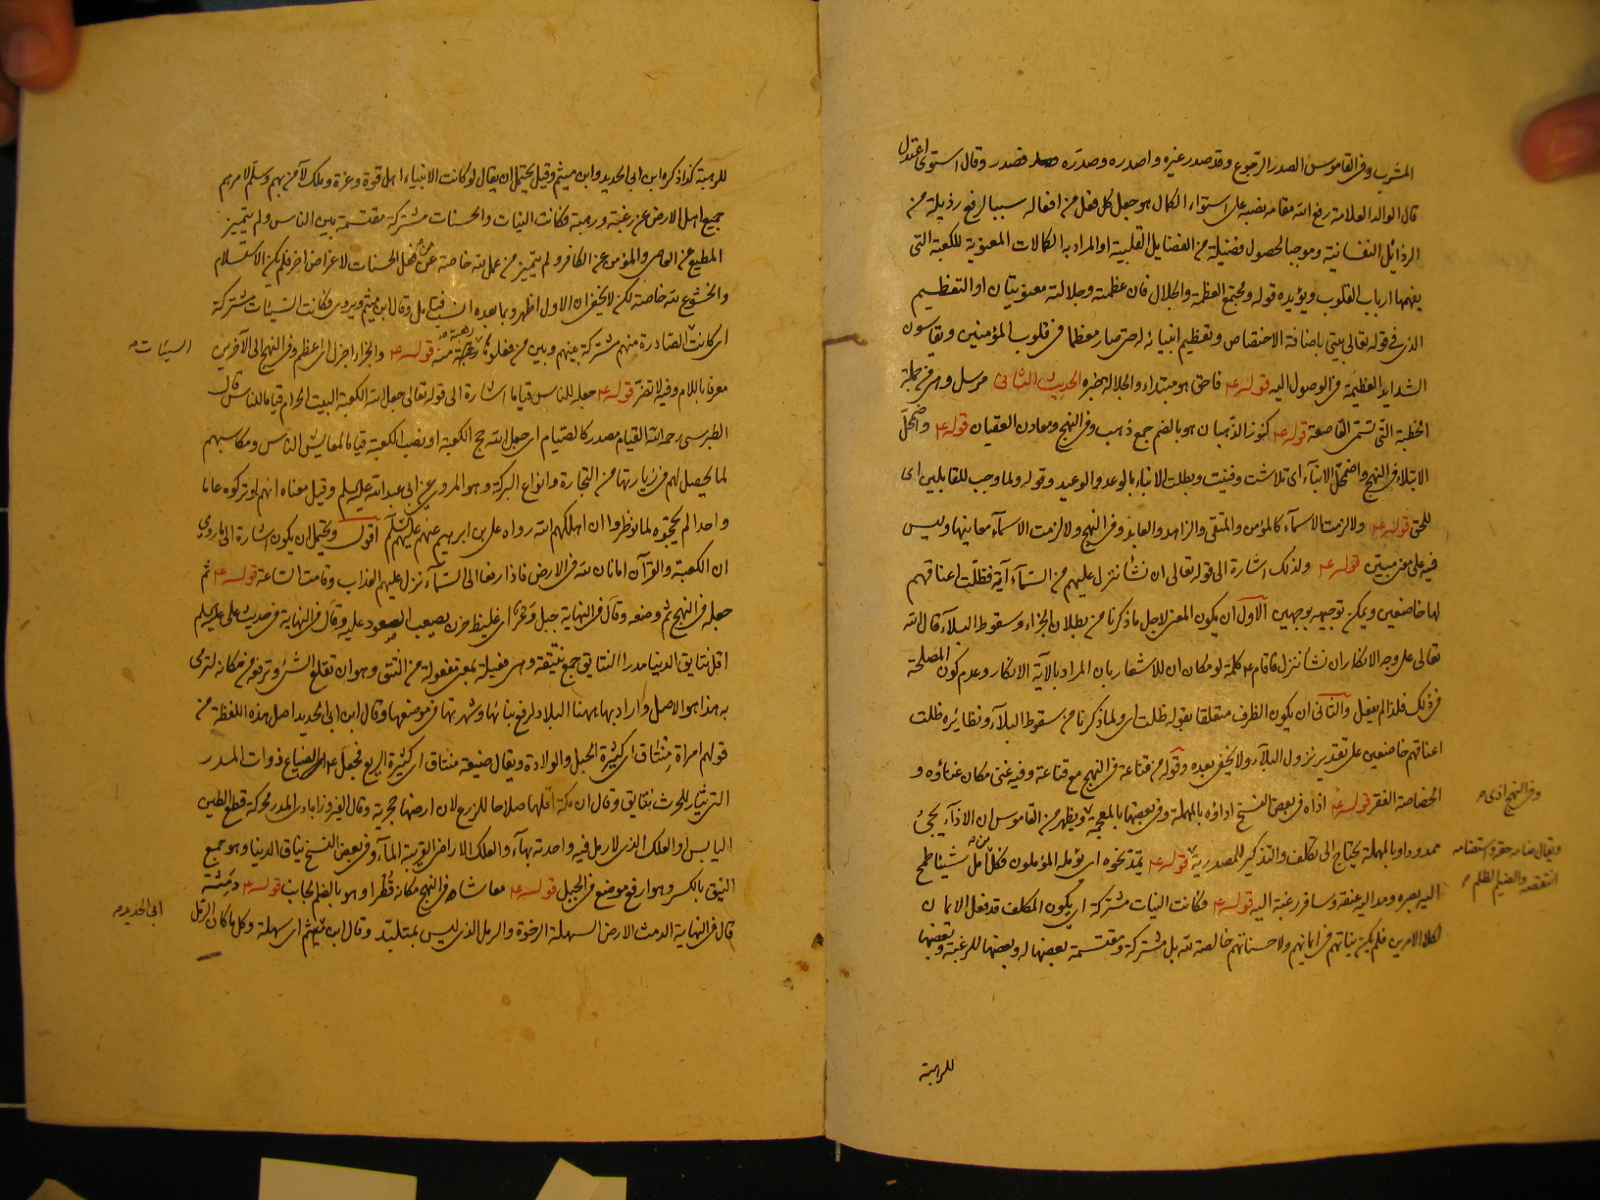 المشرب وفي القاموس الصدر الرجوع وقد صدر غيره واصدره وصدّره فصدر وقال استوى اعتدل
قال الوالد العلامة رفع الله مقامه نصبه على استواء الكمال هو جعل كل فعل من افعاله سببا لرفع رذيلة من
الرذائل النفسانية وموجبا لحصول فضيلة من الفضايل القلبية او المراد به الكمالات المعنوية للكعبة التي
يفهمها ارباب القلوب ويؤيده قوله ومجتمع العظمة والجلال فان عظمته وجلالته معنويتان او التعظيم
الذي في قوله تعالى بيتي باضافة الاختصاص وتعظيم انبيائه له حتى صار معظما في قلوب المؤمنين ويقاسون
الشدايد العظيمة في الوصول اليه قوله ع فاحق هو مبتداء والجلالة خبره الحديث الثاني مرسل وهي من جملة
الخطبة التي تسمى القاصعة قوله ع كنوز الذهبان هو بالضم جمع ذهب وفي النهج ومعادن العقيان قوله ع واضمحل
الابتلاء في النهج واضمحلّ الانباء اى تلاشت وفنيت وبطلت الانباء بالوعد والوعيد وقوله ولما وجب للقابلين اى
للحق قوله ع ولا لزمت الاسماء كالمؤمن والمتقى والزاهد والعابد وفي النهج ولا لزمت الاسماء معانيها وليس
فيه على معنى مبين قوله ع ولذلك اشارة الى قوله تعالى ان نشأ ننزل عليهم من السماء آية فظلّت اعناقهم
لها خاضعين ويمكن توجيهه بوجهين الاول ان يكون المعنى لاجل ما ذكرنا من بطلان الجزاء وسقوط البلاء قال الله
تعالى على وجه الانكار ان نشأ ننزل فاقام ع كلمة لو مكان ان للاشعار بان المراد بالآية الانكار وعدم كون المصلحة
في ذلك فلذا لم يفعل والثانى ان يكون الظرف متعلقا بقوله ظلت اى ولما ذكرنا من سقوط البلاء ونظائره ظلت
اعناقهم خاضعين على تقدير نزول البلاء ولا يخفى بعده وقوله من قناعة في النهج مع قناعة وفيه غنى مكان غناؤه و
الخصاصة الفقر قوله ع اذاه في بعض النسخ اداؤه بالمهملة وفي بعضها بالمعجمة ويظهر من القاموس ان الاذاء يجئ
وفي النهج اذى م
ممدودا وبالمهملة يحتاج الى تكلف والتذكير للمصدرية قوله ع يمتد نحوه اى يؤمله المؤملون فكل من امل شيئا طمح
ويقال ضاره حقه واستضامه
انتقصه والضيم الظلم م
اليه بصره ومد اليه عنقه وسافر رغبة اليه قوله ع فكانت النيات مشتركة اى يكون المكلف قد فعل الايمان
لكلا الامرين فلم يكن نياتهم في ايمانهم ولا حسناتهم خالصة لله بل مشتركة ومقتسمة بعضها له وبعضها للرغبة وبعضها
للرهبة
للرهبة كذا ذكره ابن ابى الحديد وابن ميثم وقيل يحتمل ان يقال لو كانت الانبياء اهل قوة وعزة وملك لآمن بهم وسلّم لامرهم
جميع اهل الارض عن رغبة ورهبة فكانت النيات والحسنات مشتركة مقتسمة بين الناس ولم يتميز
المطيع من العاصى والمؤمن عن الكافر ولم يتميز من عمل لله خاصة عمن فعل الحسنات لاغراض اخر فلم يكن الاستسلام
والخشوع لله خاصة لكن لا يخفى ان الاول اظهر وبما بعده انسب فتامل وقال ابن ميثم ويروى فكانت السيئات مشتركة
اى كانت الصادرة منهم مشتركة بينهم وبين من فعلوها رغبة او رهبة منه قوله ع والجزاء اجزل اى اعظم وفي النهج الى الآخرين
السيئات م
معرفا باللام وفيه لا تعز قوله ع جعله للناس قياما اشارة الى قوله تعالى جعل الله الكعبة البيت الحرام قياما للناس قال
الطبرسى رحمه الله القيام مصدر كالصيام اى جعل الله حج الكعبة او نصب الكعبة قياما لمعايش الناس ومكاسبهم
لما يحصل لهم في زيارتها من التجارة وانواع البركة وهو المروي عن ابى عبد الله عليه السلم وقيل معناه انهم لو تركوه عاما
واحدا لم يحجّوه لما نوظروا ان اهلكهم الله رواه على بن ابرهيم عنهم عليهم السلم اقول ويحتمل ان يكون اشارة الى ما روى
ان الكعبة والقرآن امانان لله في الارض فاذا رفعا الى السماء نزل عليهم العذاب وقامت الساعة قوله ع ثم
جعله في النهج ثم وضعه وقال في النهاية جبل وعر اى غليظ حزن يصعب الصعود عليه وقال في النهاية في حديث على عليه السلم
اقل نتايق الدنيا مدرا النتايق جمع نتيقة وهى فعيلة بمعنى مفعولة من النتق وهو ان تقلع الشئ وترفعه من مكانه لترمى
به هذا هو الاصل واراد بها ههنا البلاد لرفع بنائها وشهرتها في موضعها وقال ابن ابى الحديد اصل هذه اللفظة من
قولهم امراة منتاق اى كثيرة الحبل والولادة ويقال ضيعة منتاق اى كثيرة الريع فجعل ع الضياع ذوات المدر
التى تثار للحرث نتايق وقال ان مكة اقلها صلاحا للزرع لان ارضها حجرية وقال الفيروزابادى المدر محركة قطع الطين
اليابس او العلك الذى لا رمل فيه واحدته بهاء والعلك الاراضى القريبة الماء وفي بعض النسخ نياق الدنيا وهو جمع
النيق بالكسر وهو ارفع موضع في الجبل قوله ع معاشا في النهج مكانه قُطرا وهو بالضم الجانب قوله ع دمثة
قال في النهاية الدمث الارض السهلة الرخوة والرمل الذى ليس بمتلبّد وقال ابن ميثم اى سهلة وكلما كان الرمل
ابى الحديد م